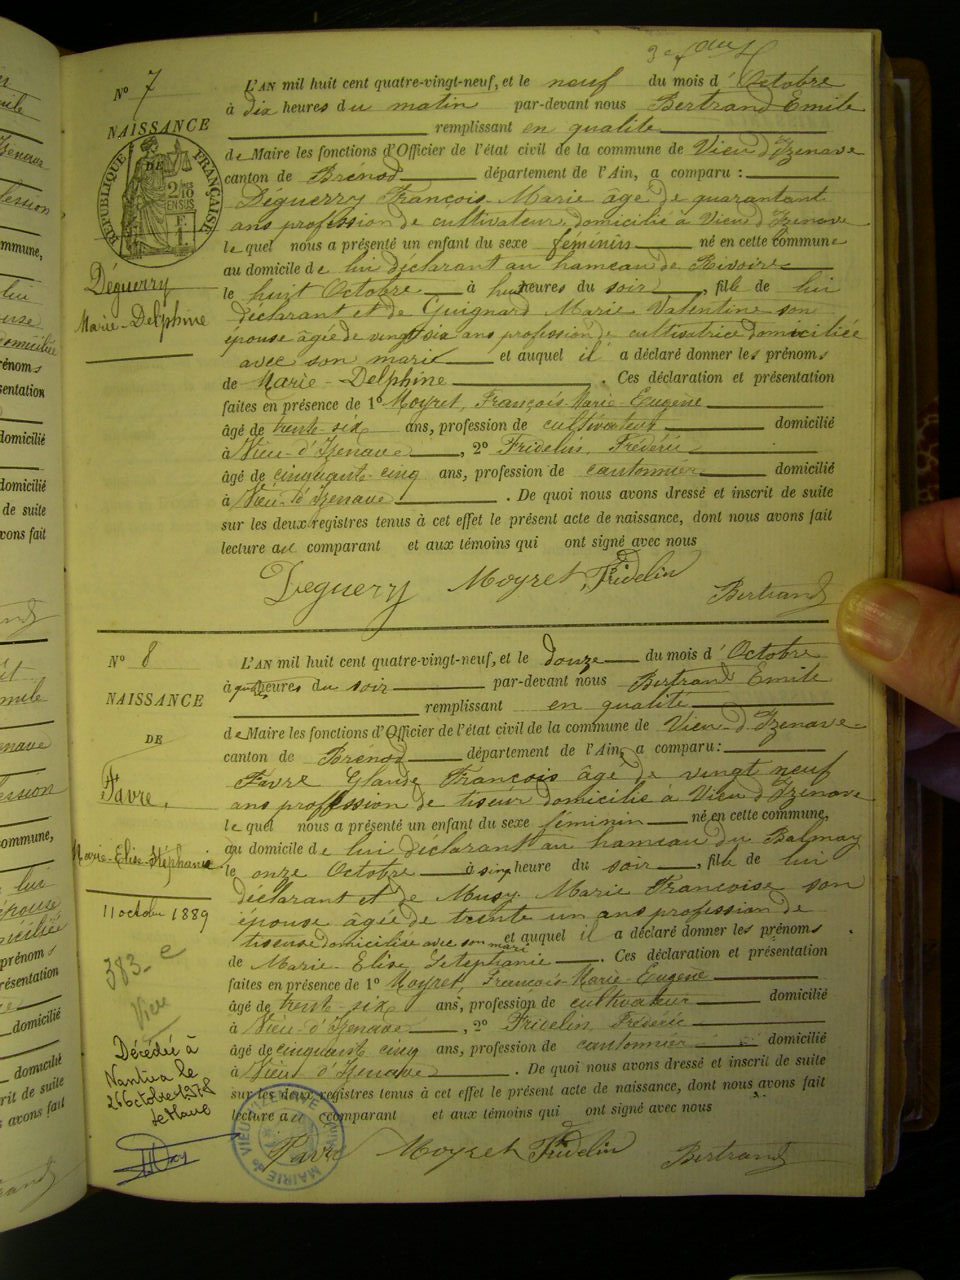 Nº 7
NAISSANCE
DE
RÉPUBLIQUE FRANÇAISE
Déguerry
Marie-Delphine
L'AN mil huit cent quatre-vingt-neuf, et le neuf du mois d'Octobre
à dix heures du matin par-devant nous Bertrand Emile
remplissant en qualité
de Maire les fonctions d'Officier de l'état civil de la commune de Vieu d'Izenave
canton de Brénod département de l'Ain, a comparu :
Déguerry François Marie âgé de quarantant
ans profession de cultivateur domicilié à Vieu d'Izenave
lequel nous a présenté un enfant du sexe féminin né en cette commune
au domicile de lui déclarant au hameau de Rivoire
le huit Octobre à huit heures du soir, fille de lui
déclarant et de Guignard Marie Valentine son
épouse âgée de vingt six ans profession de cultivatrice domiciliée
avec son marie et auquel il a déclaré donner les prénoms
de Marie-Delphine. Ces déclaration et présentation
faites en présence de 1º Moyret, François-Marie-Eugène
âgé de trente-six ans, profession de cultivateur domicilié
à Vieu-d'Izenave, 2º Fridelin, Frédéric
âgé de cinquant-cinq ans, profession de cantonnier domicilié
à Vieu-d'Izenave. De quoi nous avons dressé et inscrit de suite
sur les deux registres tenus à cet effet le présent acte de naissance, dont nous avons fait
lecture au comparant et aux témoins qui ont signé avec nous
Deguerry Moyret Fridelin Bertrand
Nº 8
NAISSANCE
DE
Favre,
Marie-Elise-Stéphanie
11 octobre 1889
383-e
Vieu
Décédée à
Nantua le
L'AN mil huit cent quatre-vingt-neuf, et le douze du mois d'Octobre
à quatre heures du soir par-devant nous Bertrand Emile
remplissant en qualité
de Maire les fonctions d'Officier de l'état civil de la commune de Vieu-d'Izenave
canton de Brénod département de l'Ain, a comparu :
Favre Glaude François âgé de vingt neuf
ans proffession de tiseur domicilié à Vieu d'Izenave
lequel nous a présenté un enfant du sexe féminin né en cette commune,
au domicile de lui déclarant au hameau du Balmay
le onze Octobre à cinq heure du soir, fille de lui
déclarant et de Musy Marie Francoise son
épouse âgée de trente un ans profession de
tiseuse domiciliée avec son mari et auquel il a déclaré donner les prénoms
de Marie Elise Setephanie. Ces déclaration et présentation
faites en présence de 1º Moyret, François-Marie-Eugène
âgé de trente-six ans, profession de cultivateur domicilié
à Vieu-d'Izenave, 2º Fridelin, Frédéric
âgé de cinquant cinq ans, profession de cantonnier domicilié
à Vieu d'Izenave. De quoi nous avons dressé et inscrit de suite
sur les deux registres tenus à cet effet le présent acte de naissance, dont nous avons fait
lecture au comparant et aux témoins qui ont signé avec nous
Favre Moyret Fridelin Bertrand